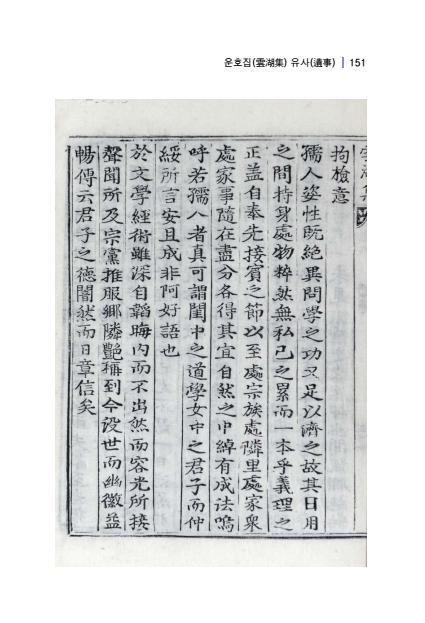 운호집(雲湖集) 유사(遺事) | 151
拘檢意
孺人姿性旣絶異問學之功又足以濟之故其日用
之間持身處物粹然無私己之累而一本乎義理之
正盖自奉先接賓之節以至處宗族處隣里處家衆
處家事隨在盡分各得其宜自然之中綽有成法嗚
呼若孺人者真可謂閨中之道學女中之君子而仲
綏所言安且成非阿好語也
於文學經術雖深自韜晦內而不出然而容光所接
聲聞所及宗黨推服鄕隣艶稱到今没世而幽徽益
暢傳云君子之德闇然而日章信矣